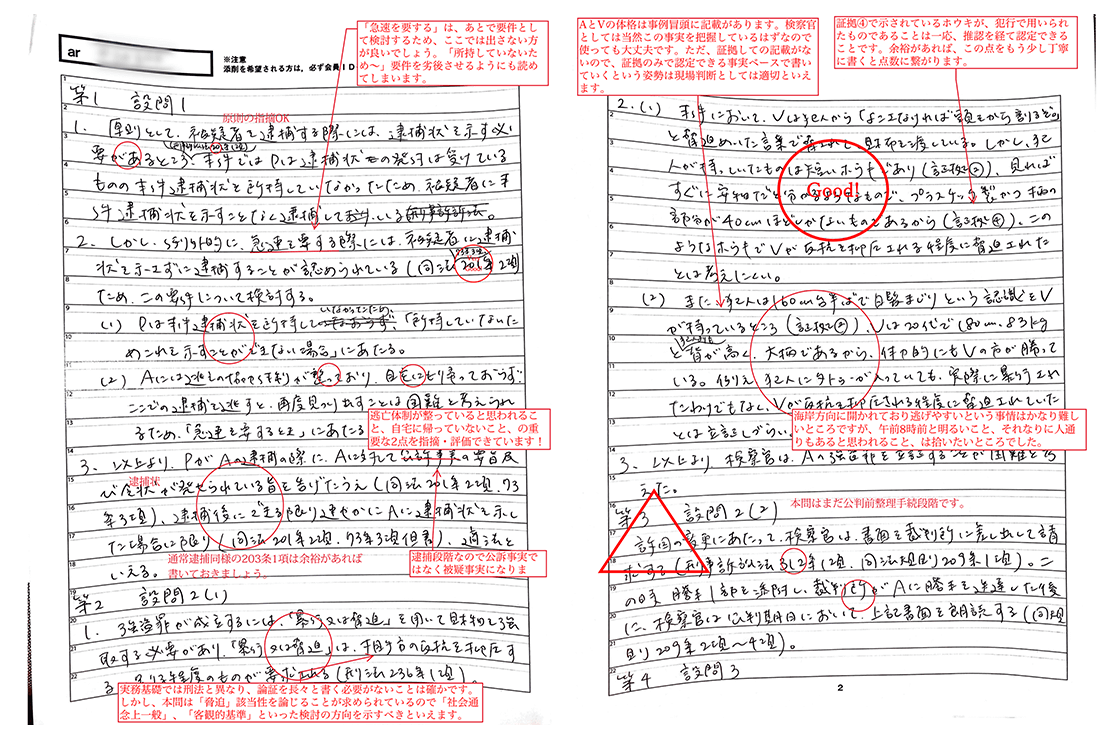 ar
※注意
添削を希望される方は、必ず会員ID
「急速を要する」は、あとで要件とし
て検討するため、ここでは出さない方
が良いでしょう。「所持していないた
め〜」要件を劣後させるようにも読め
てしまいます。
第1 設問1
原則の指摘OK
1. 原則として、被疑者を逮捕する際には、逮捕状を示す必
要がある
ところ、本件ではPは逮捕状の発付は受けている
ものの本件逮捕状を所持していなかったため、被疑者に本
件逮捕状を示すことなく逮捕して
2. しかし、例外的に、急速を要する際には、被疑者に逮捕
状を示さずに逮捕することが認められている(同法201条2項)
ため、この要件について検討する。
(1) Pは本件逮捕状を所持していなかったため、「所持していないた
めこれを示すことができない場合」にあたる。
(2) Aには逃亡の
が整っており、自宅にも戻っておらず、
ここでの逮捕を逃すと、再度見つけ出すことは困難と考えられ
るため、「急速を要するとき」にあたる
逃亡体制が整っていると思われるこ
と、自宅に帰っていないこと、の重
要な2点を指摘・評価できています!
3. 以上より、PがAの逮捕の際に、Aに対して公訴事実の要旨及
逮捕状
び令状が発せられている旨を告げたうえ(同法201条2項、73
条3項)、逮捕後にできる限り速やかにAに逮捕状を示し
た場合に限り(同法201条2項、73条3項但書)、適法と
いえる。
通常逮捕同様の203条1項は余裕があれば
書いておきましょう。
逮捕段階なので公訴事実で
はなく被疑事実になりま
第2 設問2(1)
1. 強盗罪が成立するには、「暴行又は脅迫」を用いて財物を強
取する必要があり、「暴行又は脅迫」は、相手方の反抗を抑圧す
る
程度のものが要求される(刑法236条1項)。
実務基礎では刑法と異なり、論証を長々と書く必要がないことは確かです。
しかし、本問は「脅迫」該当性を論じることが求められているので「社会通
念上一般」、「客観的基準」といった検討の方向を示すべきといえます。
AとVの体格は事例冒頭に記載があります。検察官
としては当然この事実を把握しているはずなので
使っても大丈夫です。ただ、証拠としての記載がな
いので、証拠のみで認定できる事実ベースで書い
ていくという姿勢は現場判断としては適切といえ
ます。
証拠④で示されているホウキが、犯行で用いられ
たものであることは一応、推認を経て認定できる
ことです。余裕があれば、この点をもう少し丁寧
に書くと点数に繋がります。
2. (1) 本件において、Vは犯人から「よこさなければ頭をかち割るぞ」
と脅迫めいた言葉で脅されて、財布を渡している。しかし、犯
人が持っていたものは短いホウキであり(証拠②)、見れば
すぐに安物だと分かるようなもので、プラスチック製かつ柄の
部分が40cmほどしかないものであるから(証拠④)、この
ようなホウキでVが反抗を抑圧される程度に脅迫された
とは考えにくい。
Good!
(2) また、犯人は160cm台半ばで白髪まじりという認識をV
が持っているところ(証拠②)、Vは20代で180cm、83kg
と背が高く、大柄であるから、体力的にもVの方が勝って
いる。例え、犯人にタトゥーが入っていても、実際に暴行され
たわけでもなく、Vが反抗を抑圧される程度に脅迫されていた
とは立証しづらい
海岸方向に開かれており逃げやすいという事情はかなり難し
いところですが、午前8時前と明るいこと、それなりに人通
りもあると思われること、は拾いたいところでした。
3. 以上より、検察官は、Aの強盗罪を立証することが困難と考
えた。
本問はまだ公判前整理手続段階です。
第3 設問2(2)
訴因の変更にあたって、検察官は、書面を裁判所に差し出して請
求する(刑事訴訟法312条1項、同法規則209条1項)。こ
の時、謄本1部を添附し、裁判所がAに謄本を送達した後
に、検察官は公判期日において、上記書面を朗読する(同規
則209条2項〜4項)。
第4 設問3
2